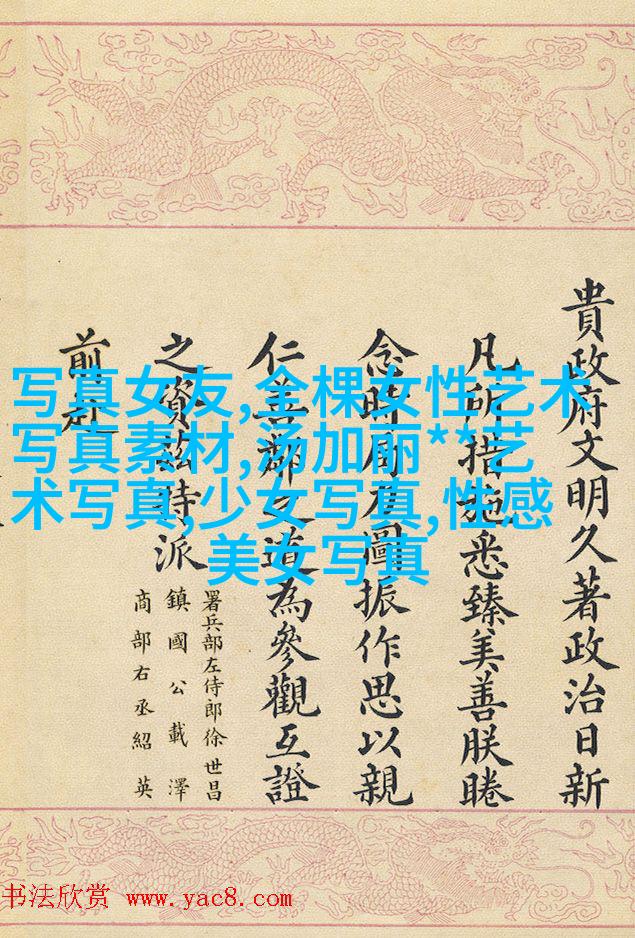 貴政府文明久著政治日新
凡所措施悉臻美善朕睠
念時局力圖振作思以親
仁善鄰之道為參觀互證
之資茲特派
署兵部左侍郎徐世昌
鎮國公載澤
商部右丞紹英
前赴
写真女友,全棵女性艺术
写真素材,汤加丽**艺
术写真,少女写真,性感
美女写真
书法欣赏 www.yac8.com